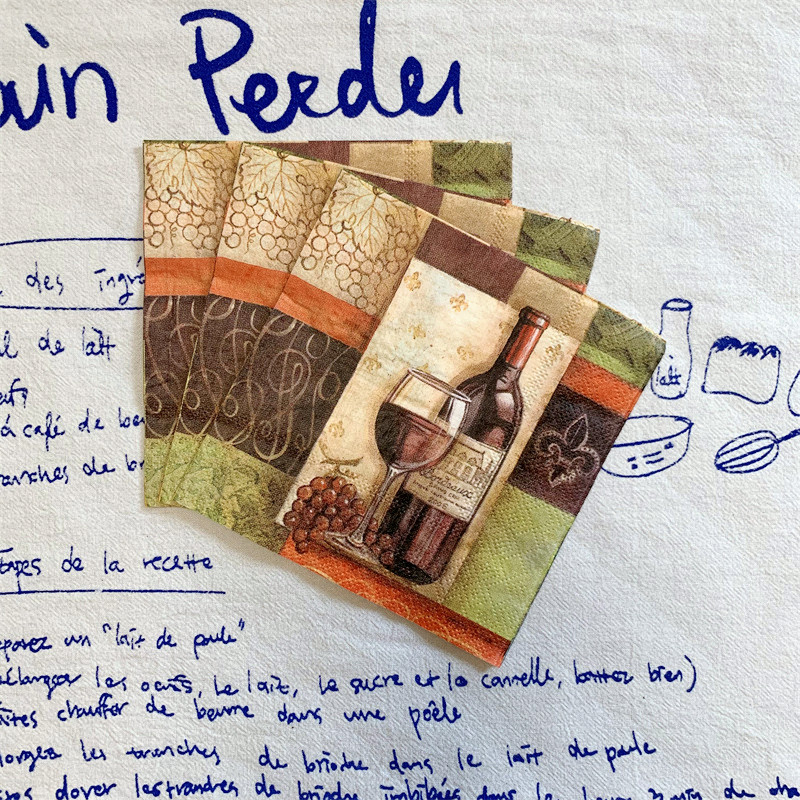 ain Perdu
des ingré
l de lait
à café de be
tranches de br
lait
Bordeaux
tapes de la recette
éparez un "lait de poule"
élangez les oeufs, le lait, le sucre et la cannelle, battez bien)
aites chauffer de beurre dans une poêle
longez les tranches de brioche dans le lait de poule
dorer les tranches de brioche imbibées dans le